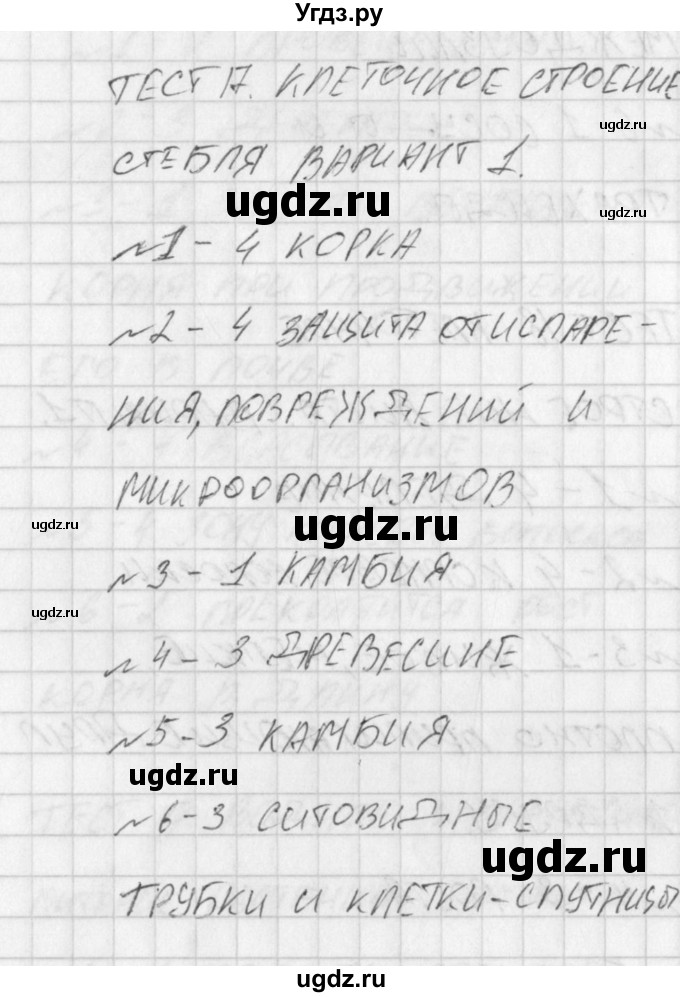 Угдз.ру
ТЕСТ 17. КЛЕТОЧНОЕ СТРОЕНИЕ
ugdz.ru
СТЕБЛЯ ВАРИАНТ 1.
ugdz.ru ugdz.ru
№1 - 4 КОРКА
№2 - 4 ЗАЩИТА ОТ ИСПАРЕ-
НИЯ, ПОВРЕЖДЕНИЙ И
МИКРООРГАНИЗМОВ
ugdz.ru ugdz.ru
№3 - 1 КАМБИЯ
ugdz.ru
№4 - 3 ДРЕВЕСИНЕ
№5 - 3 КАМБИЯ
ugdz.ru
№6 - 3 СИТОВИДНЫЕ
ugdz.ru
ТРУБКИ И КЛЕТКИ-СПУТНИЦЫ
ugdz.ru